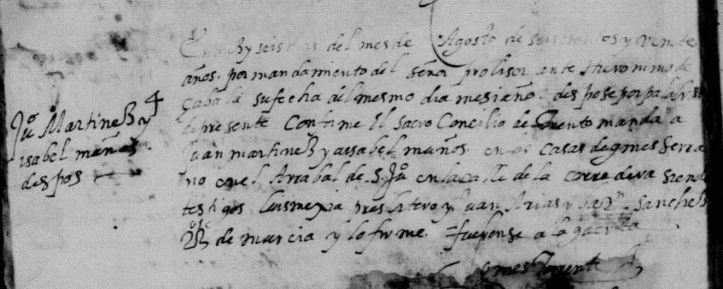 Ju Martinez y
isabel muños
despos
y seis dias del mes de Agosto de seiscientos y veinte
años. por mandamiento del señor provisor ante Hieronimo de
su fecha del mismo dia mes i año. despose por palabras
de presente Conforme El Sacro Concilio de Trento manda a
Juan martinez y aisabel muños en las casas de gines serra
no en el Arrabal de S. Ju en la calle de la corredera siendo
testigos luis mexia presbitero y Juan Arias y Sanchez
de murcia y lo firme.
gines Torrente